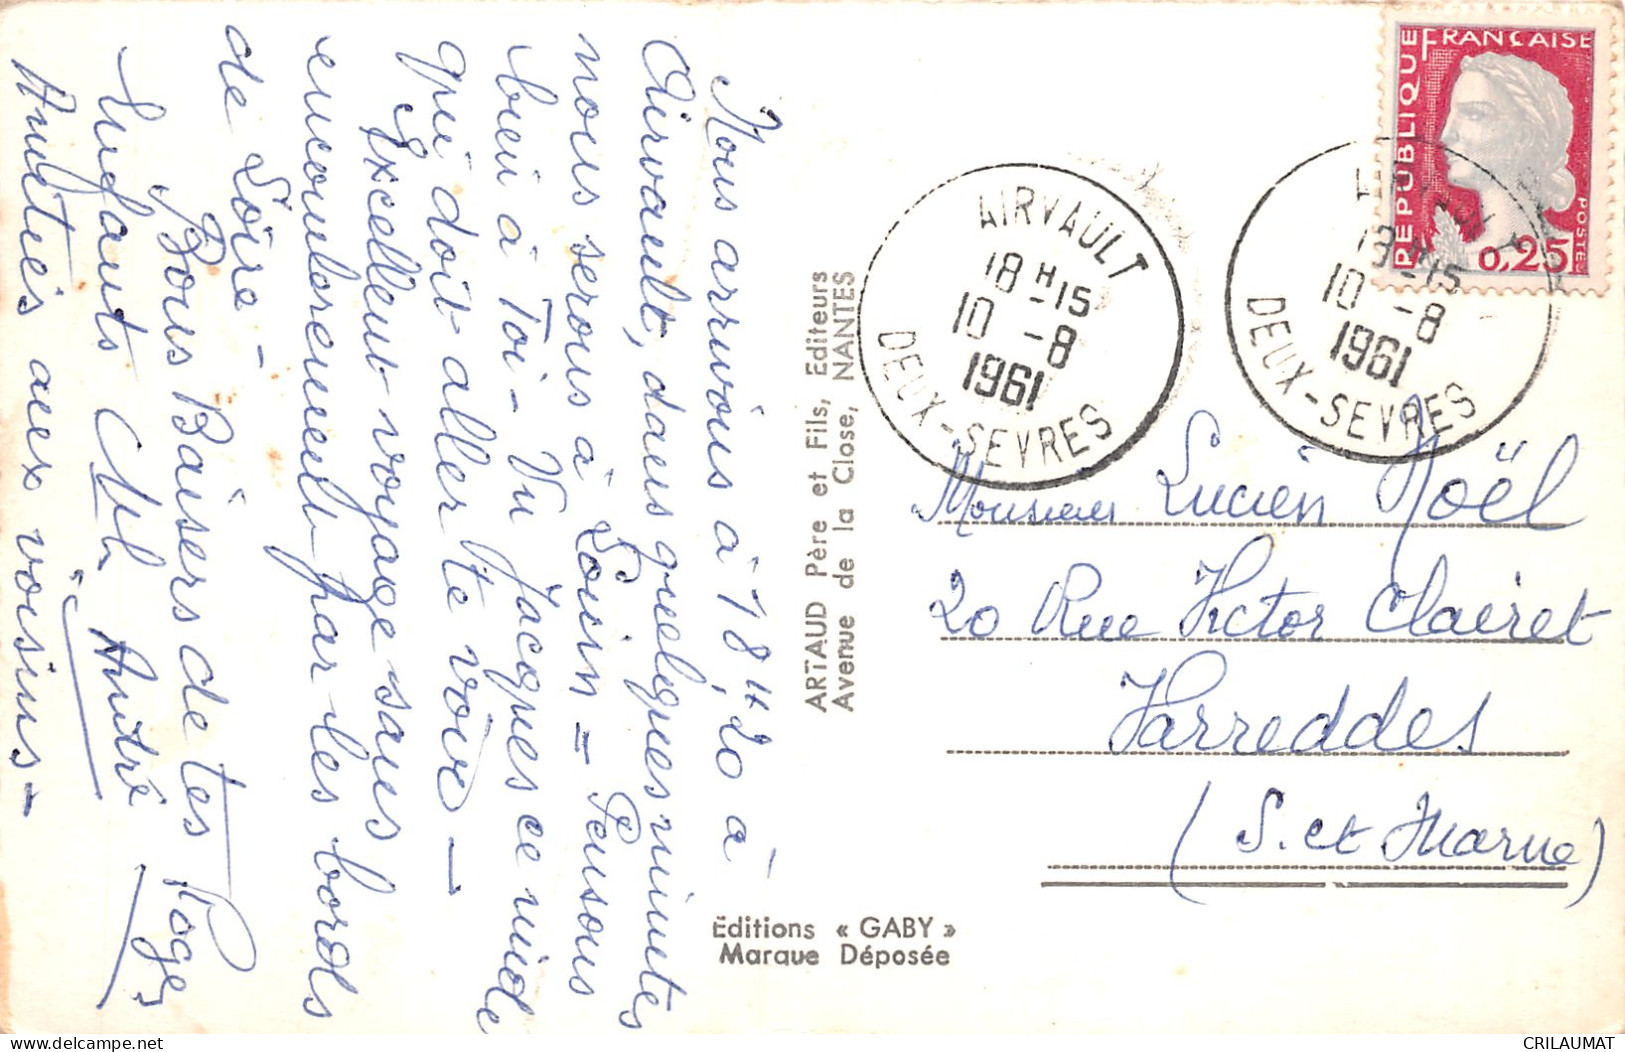 Nous arrivons à 18H20 à
Airvault, dans quelques minutes
nous serons à Louin = Pensons
bien à Toi - Vu Jacques ce midi
qui doit aller te voir -
Excellent voyage sans
encombrement par les bords
de Loire -
Bons Baisers de tes
Enfants André
Amitiés aux voisins -
ARTAUD Père et Fils, Editeurs
Avenue de la Close, NANTES
Editions « GABY »
Marque Déposée
AIRVAULT
18H-15
10 -8
1961
DEUX-SEVRES
AIRVAULT
18H-15
10 -8
1961
DEUX-SEVRES
REPUBLIQUE FRANÇAISE
POSTES
0,25
Monsieur Lucien Noël
20 Rue Victor Clairet
Varreddes
(S. et Marne)
CRILAUMAT